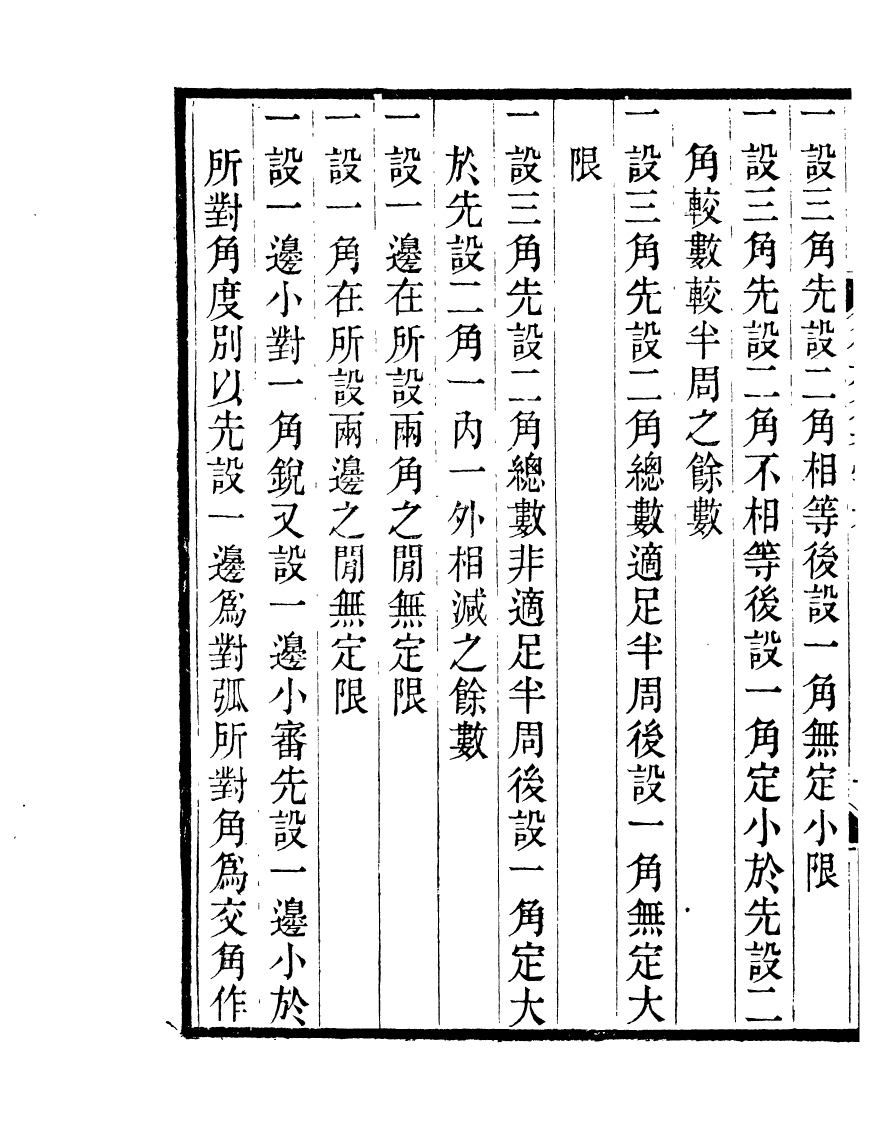 一設三角先設二角相等後設一角無定小限
一設三角先設二角不相等後設一角定小於先設二
角較數較半周之餘數
一設三角先設二角總數適足半周後設一角無定大
限
一設三角先設二角總數非適足半周後設一角定大
於先設二角一內一外相減之餘數
一設一邊在所設兩角之閒無定限
一設一角在所設兩邊之閒無定限
一設一邊小對一角銳又設一邊小審先設一邊小於
所對角度別以先設一邊爲對弧所對角爲交角作